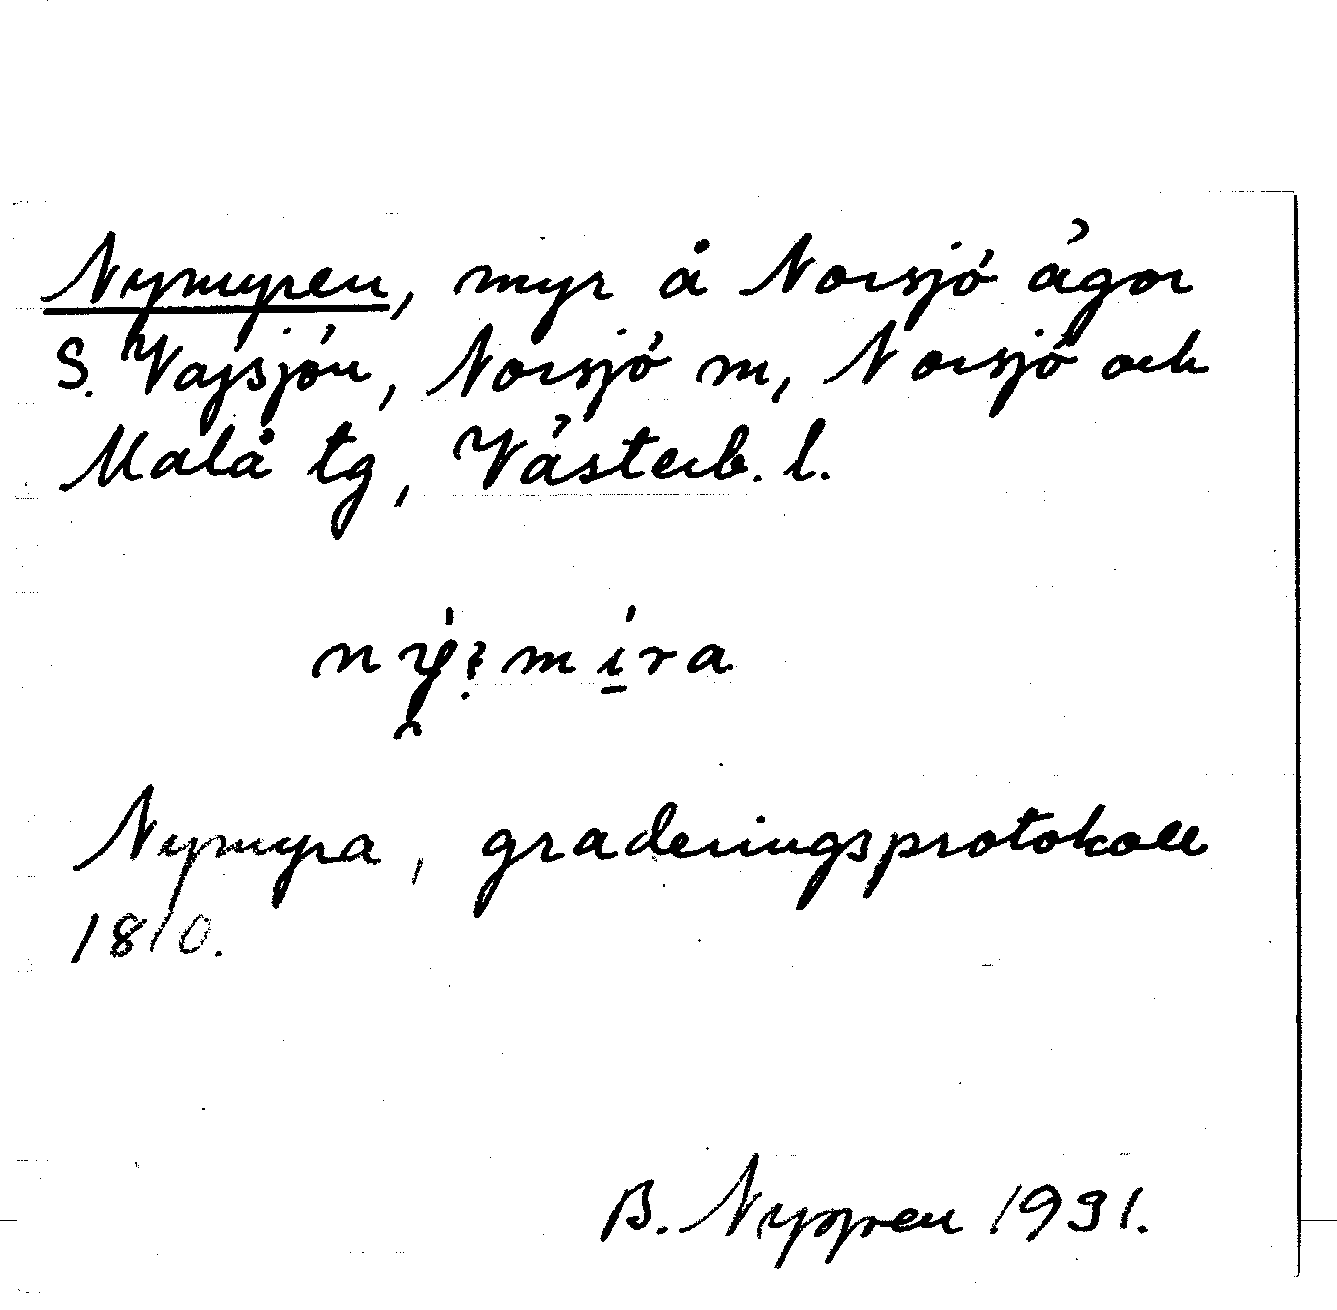 Nymyren, myr å Norsjö ägor
S. Vajsjön, Norsjö m, Norsjö och
Malå tg, Västerb. l.
Nymyra, graderingsprotokoll
1810.
B. Nygren 1931.